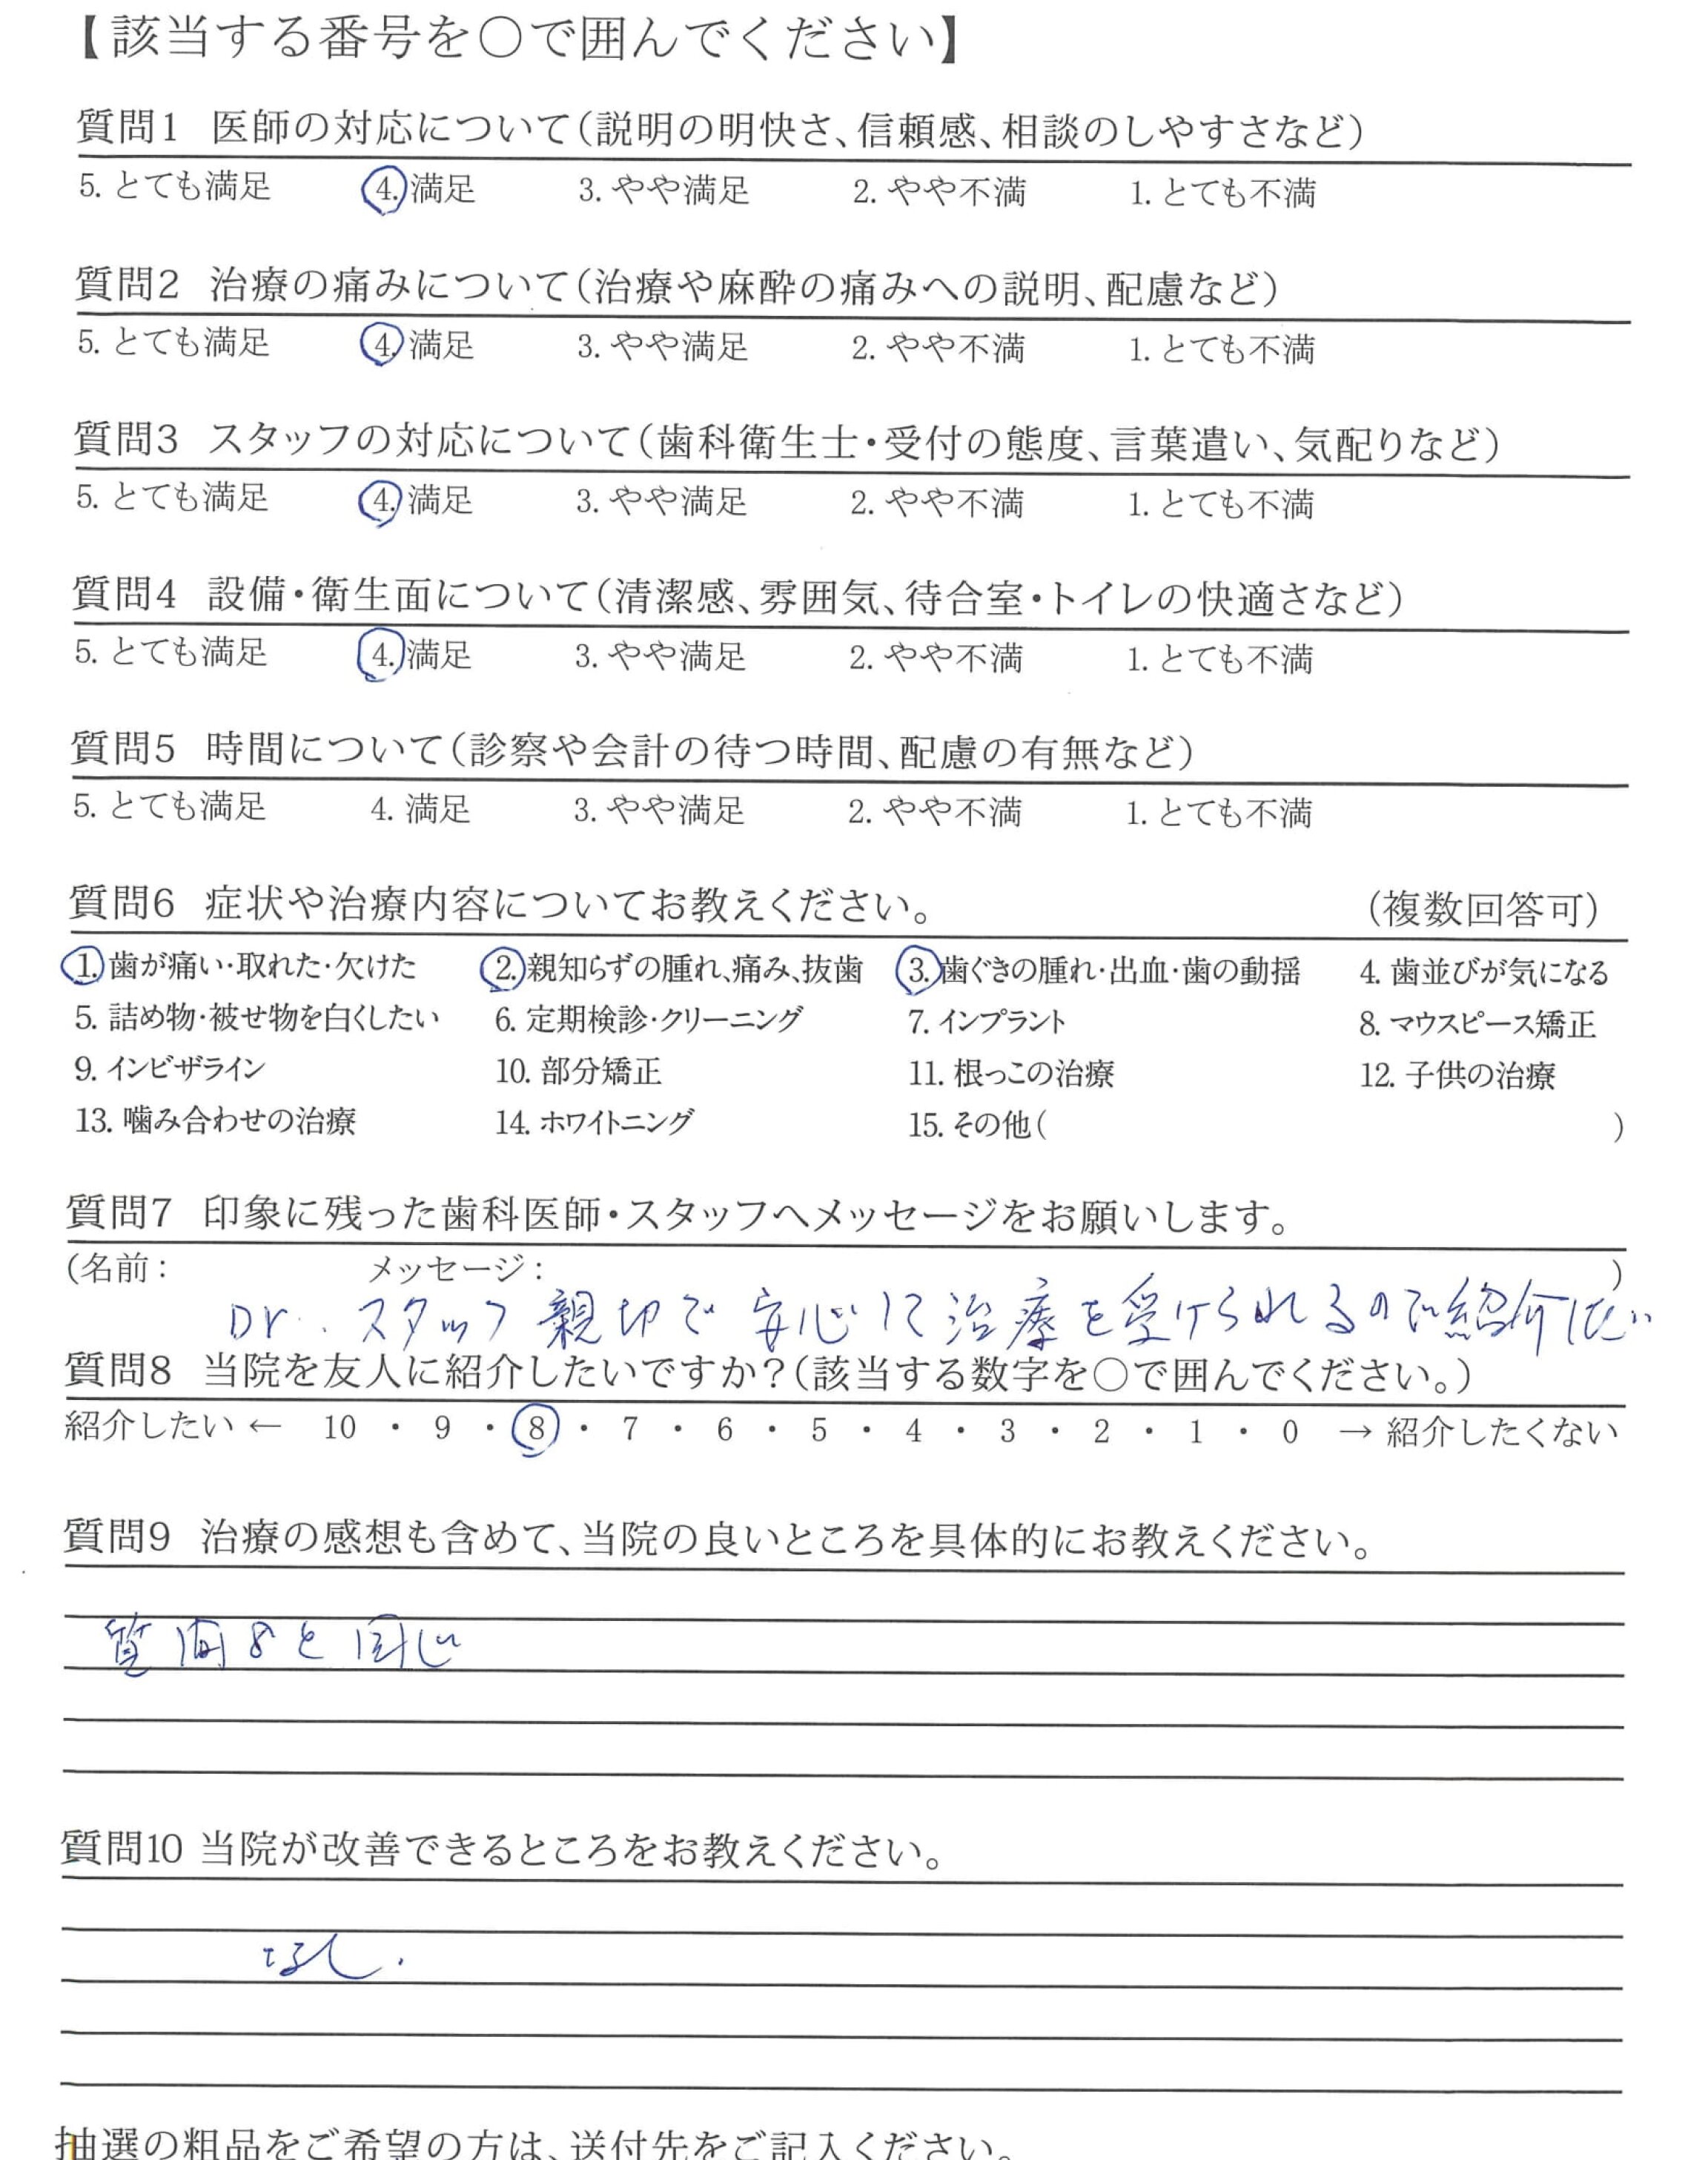 【該当する番号を○で囲んでください】
質問1 医師の対応について(説明の明快さ、信頼感、相談のしやすさなど)
5. とても満足 4. 満足 3. やや満足 2. やや不満 1. とても不満
質問2 治療の痛みについて(治療や麻酔の痛みへの説明、配慮など)
5. とても満足 4. 満足 3. やや満足 2. やや不満 1. とても不満
質問3 スタッフの対応について(歯科衛生士・受付の態度、言葉遣い、気配りなど)
5. とても満足 4. 満足 3. やや満足 2. やや不満 1. とても不満
質問4 設備・衛生面について(清潔感、雰囲気、待合室・トイレの快適さなど)
5. とても満足 4. 満足 3. やや満足 2. やや不満 1. とても不満
質問5 時間について(診察や会計の待つ時間、配慮の有無など)
5. とても満足 4. 満足 3. やや満足 2. やや不満 1. とても不満
質問6 症状や治療内容についてお教えください。 (複数回答可)
1. 歯が痛い・取れた・欠けた 2. 親知らずの腫れ、痛み、抜歯 3. 歯ぐきの腫れ・出血・歯の動揺 4. 歯並びが気になる
5. 詰め物・被せ物を白くしたい 6. 定期検診・クリーニング 7. インプラント 8. マウスピース矯正
9. インビザライン 10. 部分矯正 11. 根っこの治療 12. 子供の治療
13. 噛み合わせの治療 14. ホワイトニング 15. その他( )
質問7 印象に残った歯科医師・スタッフへメッセージをお願いします。
(名前: メッセージ: )
Dr. スタッフ親切で安心して治療を受けられるので紹介したい
質問8 当院を友人に紹介したいですか?(該当する数字を○で囲んでください。)
紹介したい ← 10 ・ 9 ・ 8 ・ 7 ・ 6 ・ 5 ・ 4 ・ 3 ・ 2 ・ 1 ・ 0 → 紹介したくない
質問9 治療の感想も含めて、当院の良いところを具体的にお教えください。
質問8と同じ
質問10 当院が改善できるところをお教えください。
なし.
抽選の粗品をご希望の方は、送付先をご記入ください。